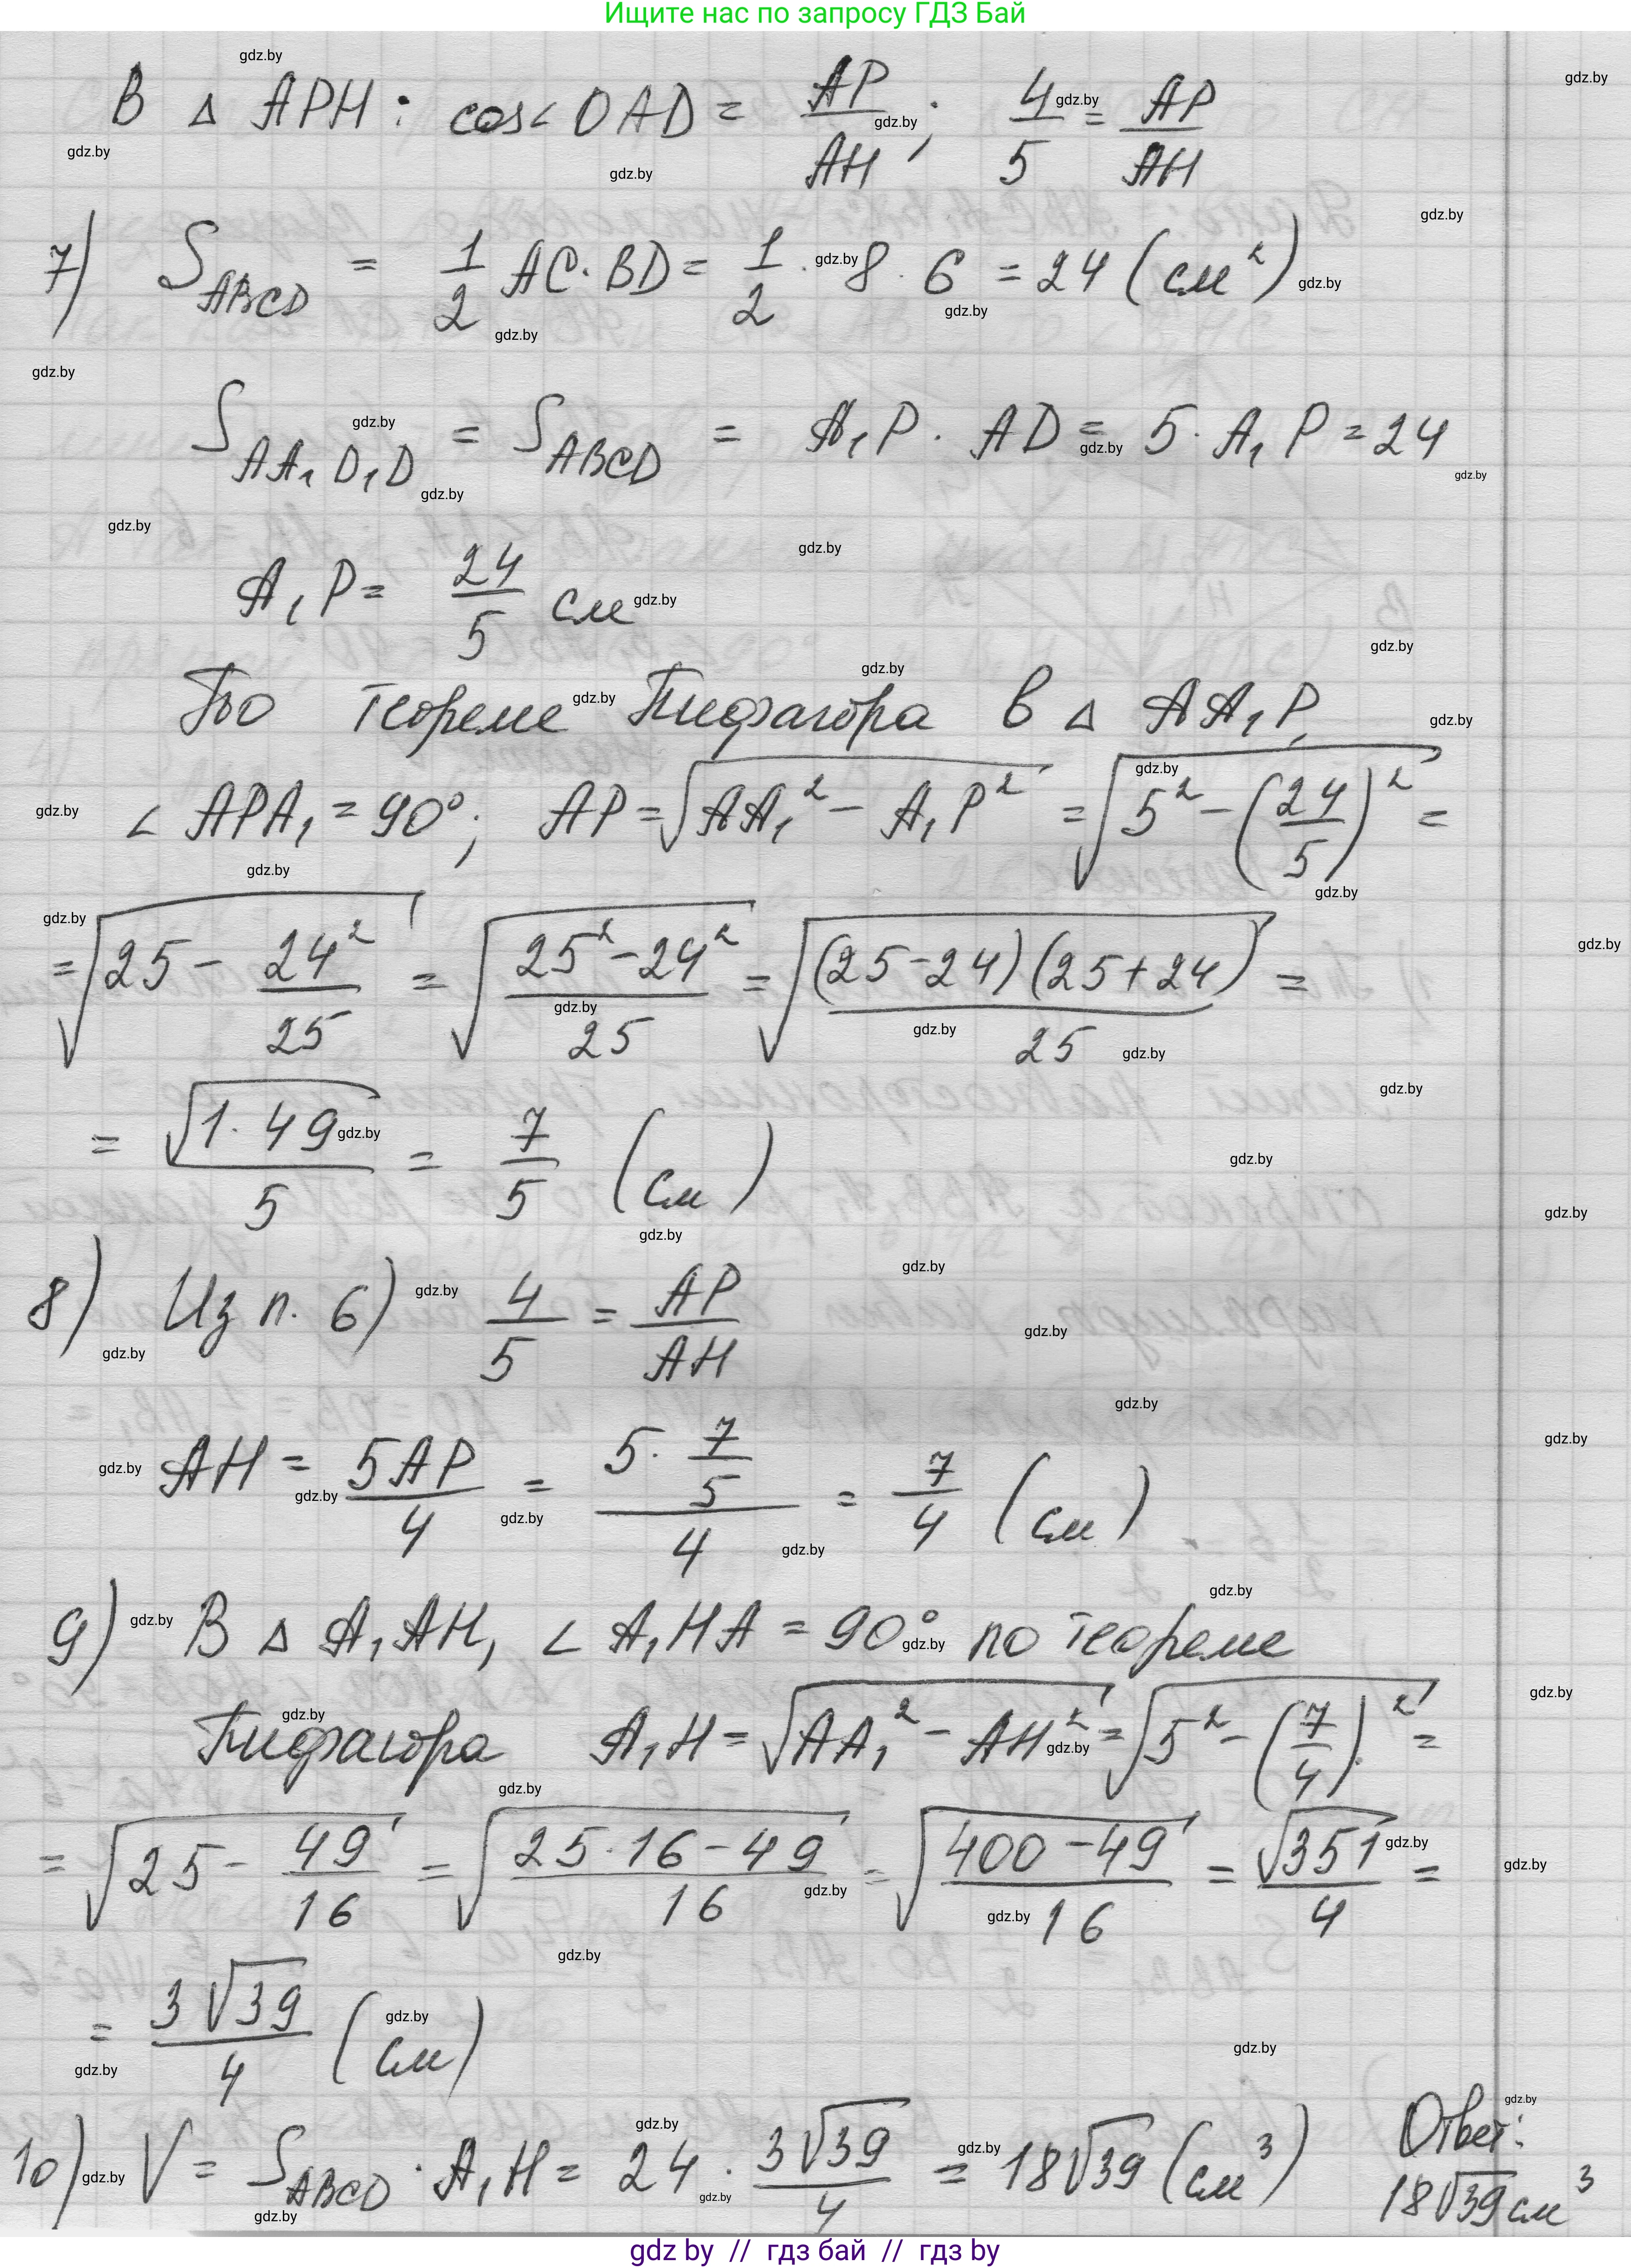 Ищите нас по запросу ГДЗ Бай
В △ APH : cos∠OAD = AP/AH ; 4/5 = AP/AH
7) S_ABCD = 1/2 AC · BD = 1/2 · 8 · 6 = 24 (см²)
S_AA₁D₁D = S_ABCD = A₁P · AD = 5 · A₁P = 24
A₁P = 24/5 см
По теореме Пифагора в △ AA₁P,
∠ APA₁ = 90°; AP = √(AA₁² − A₁P²) = √(5² − (24/5)²) =
= √(25 − 24²/25) = √((25² − 24²)/25) = √((25−24)(25+24)/25) =
= √(1 · 49)/5 = 7/5 (см)
8) Из п. 6) 4/5 = AP/AH
AH = 5AP/4 = (5 · 7/5)/4 = 7/4 (см).
9) В △ A₁AH, ∠ A₁HA = 90° по теореме
Пифагора A₁H = √(AA₁² − AH²) = √(5² − (7/4)²) =
= √(25 − 49/16) = √((25·16 − 49)/16) = √((400 − 49)/16) = √351/4 =
= 3√39/4 (см)
10) V = S_ABCD · A₁H = 24 · 3√39/4 = 18√39 (см³)
Ответ:
18√39 см³
gdz by // гдз бай // гдз by